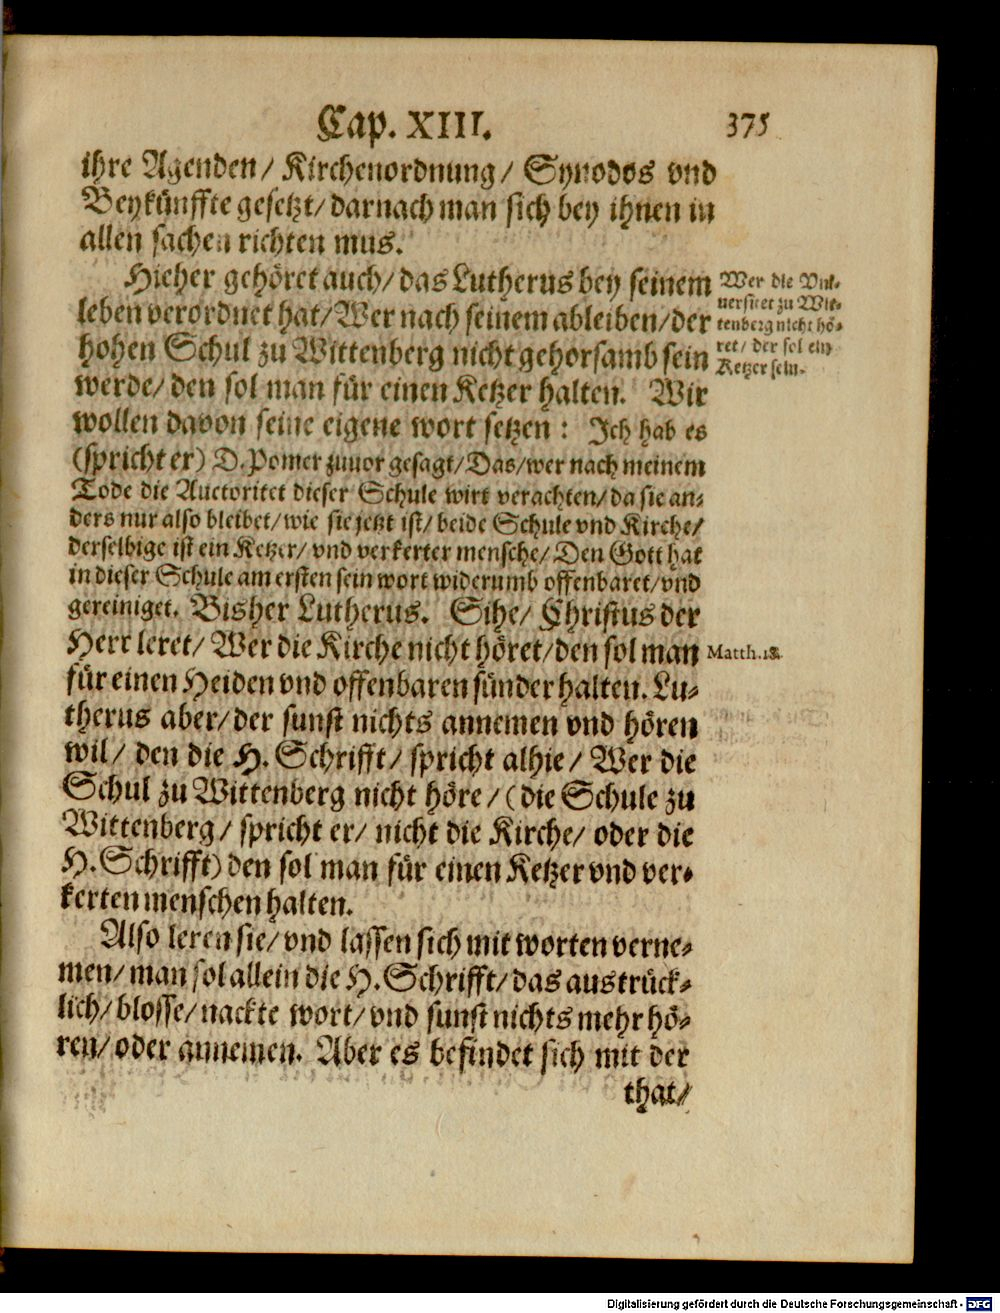 Cap. XIII. 375
ihre Agenden/ Kirchenordnung/ Synodos vnd
Beykünffte gesetzt/ darnach man sich bey ihnen in
allen sachen richten mus.
Hieher gehöret auch/ das Lutherus bey seinem
leben verordnet hat/ Wer nach seinem ableiben/ der
hohen Schul zu Wittenberg nicht gehorsamb sein
werde/ den sol man für einen Ketzer halten. Wir
wollen davon seine eigene wort setzen: Ich hab es
(spricht er) D. Pomer zuuor gesagt/ Das/ wer nach meinem
Tode die Auctoritet dieser Schule wirt verachten/ da sie an-
ders nur also bleibet/ wie sie jetzt ist/ beide Schule vnd Kirche/
derselbige ist ein Ketzer/ vnd verkerter mensche/ Den Gott hat
in dieser Schule am ersten sein wort widerumb offenbaret/ vnd
gereiniget. Bisher Lutherus. Sihe/ Christus der
Herr leret/ Wer die Kirche nicht höret/ den sol man
für einen Heiden vnd offenbaren sünder halten. Lu-
therus aber/ der sunst nichts annemen vnd hören
wil/ den die H. Schrifft/ spricht alhie/ Wer die
Schul zu Wittenberg nicht höre/ (die Schule zu
Wittenberg/ spricht er/ nicht die Kirche/ oder die
H. Schrifft) den sol man für einen Ketzer vnd ver-
kerten menschen halten.
Also leren sie/ vnd lassen sich mit worten verne-
men/ man sol allein die H. Schrifft/ das austrück-
lich/ blosse/ nackte wort/ vnd sunst nichts mehr hö-
ren/ oder annemen. Aber es befindet sich mit der
that/
Wer die Vni-
uersitet zu Wit-
tenberg nicht hö-
ret/ der sol ein
Ketzer sein.
Matth. 18.
Digitalisierung gefördert durch die Deutsche Forschungsgemeinschaft - DFG